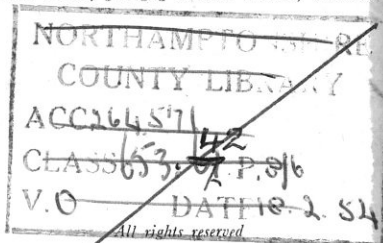 NORTHAMPTO SHIRE
COUNTY LIBRARY
ACC264517
42
CLASS P. 8/6
V.O DATE 18. 2. 54
All rights reserved